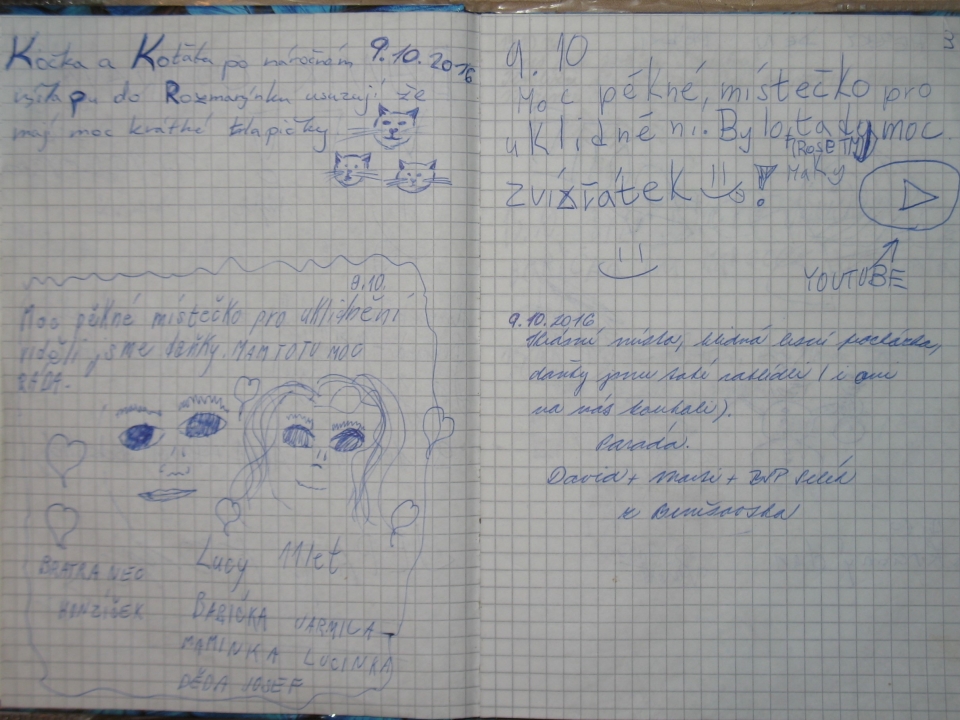 Kočka a Koťata po náročném 9.10.2016
výstupu do Rozmarýnku usuzují že
mají moc krátké tlapičky
9.10.
Moc pěkné místečko pro uklidnění
viděli jsme daňky. MAM TOTU MOC
RÁDA.
Lucy 11let
BRATRANEC
HONZÍČEK
BABIČKA JARMILA
MAMINKA LUCINKA
DĚDA JOSEF
3
9. 10
Moc pěkné, místečko pro
uklidnění. Bylo tady moc
zvířátek !
YOUTUBE
9.10.2016
Krásné místo, klidná lesní procházka,
daňky jsme také zahlédli (i oni
na nás koukali).
Paráda.
David + +
z Benešovska